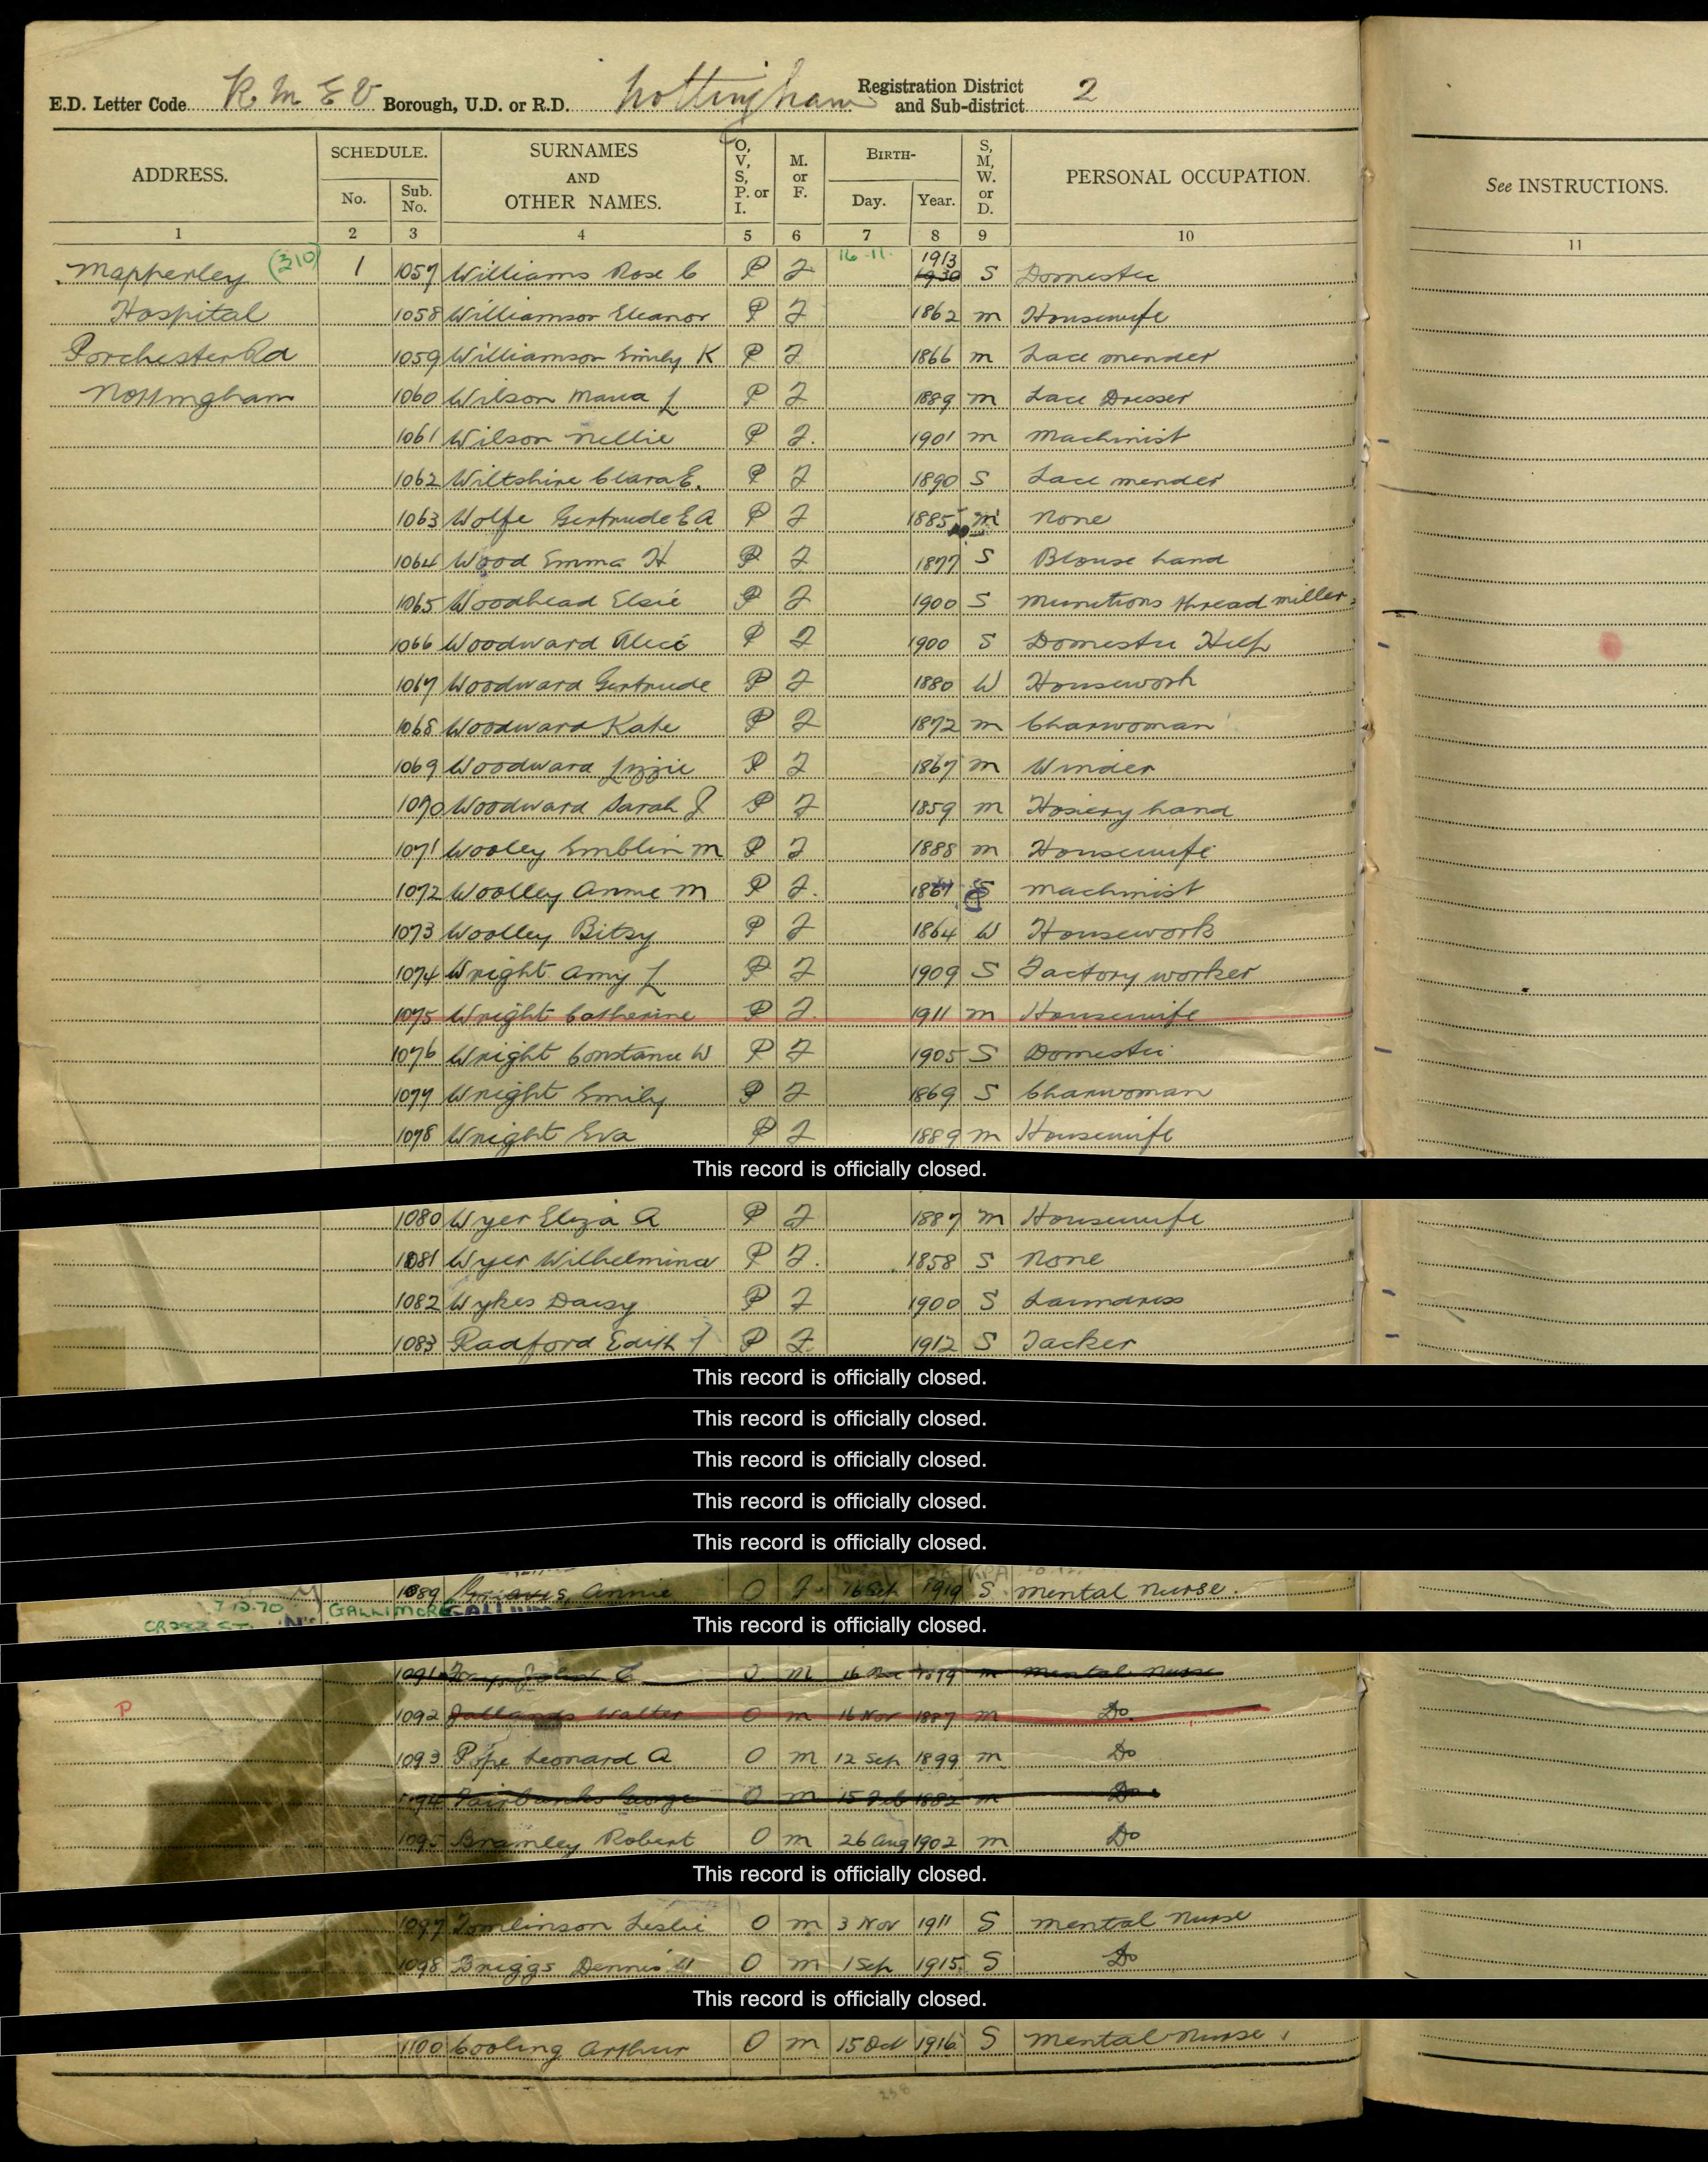 E.D. Letter Code R. M E V Borough, U.D. or R.D. Nottingham Registration District and Sub-district 2
ADDRESS. SCHEDULE. No. Sub. No. SURNAMES AND OTHER NAMES. O, V, S, P. or I. M. or F. BIRTH- Day. Year. S, M, W. or D. PERSONAL OCCUPATION. See INSTRUCTIONS.
1 2 3 4 5 6 7 8 9 10 11
Mapperley (310) 1 1057 Williams Rose C P F 16-11- 1913 1930 S Domestic
Hospital 1058 Williamson Eleanor P F 1862 m Housewife
Porchester Rd 1059 Williamson Emily K P F 1866 m Lace mender
Nottingham 1060 Wilson Maria L P F 1889 m Lace Dresser
1061 Wilson Nellie P F. 1901 m Machinist
1062 Wiltshire Clara E. P F 1890 S Lace mender
1063 Wolfe Gertrude E A P F 1885 m None
1064 Wood Emma H P F 1877 S Blouse hand
1065 Woodhead Elsie P F 1900 S Munitions thread miller
1066 Woodward Alice P F 1900 S Domestic Help
1067 Woodward Gertrude P F 1880 W Housework
1068 Woodward Kate P F 1872 m Charwoman
1069 Woodward Lizzie P F 1867 m Winder
1070 Woodward Sarah J P F 1859 m Hosiery hand
1071 Wooley Emblin M P F 1888 m Housewife
1072 Woolley Annie M P F. S Machinist
1073 Woolley Bitsy P F 1864 W Housework
1074 Wright Amy L P F 1909 S Factory worker
1075 Wright Catherine P F. 1911 m Housewife
1076 Wright Constance W P F 1905 S Domestic
1077 Wright Emily P F 1869 S Charwoman
1078 Wright Eva P F 1889 m Housewife
This record is officially closed.
1080 Wyer Eliza A P F 1887 m Housewife
1081 Wyer Wilhelmina P F. 1858 S None
1082 Wykes Daisy P F 1900 S Laundress
1083 Radford Edith P F. 1912 S Tacker
This record is officially closed.
This record is officially closed.
This record is officially closed.
This record is officially closed.
This record is officially closed.
1089 Annie O F 16 Sep 1919 S Mental Nurse.
7.12.70 GALLIMORE
This record is officially closed.
1091 John m 16 m Mental Nurse
P 1092 Jallands Walter O m 16 Nov 1887 m Do.
1093 Pope Leonard A O m 12 Sep 1899 m Do
1094 Fairbanks George O m 15 Feb 1882 m Do
1095 Bramley Robert O m 26 Aug 1902 m Do
This record is officially closed.
1097 Tomlinson Leslie O m 3 Nov 1911 S Mental Nurse
1098 Briggs Dennis O m 1 Sep 1915 S Do
This record is officially closed.
1100 Cooling Arthur O m 15 Oct 1916 S Mental Nurse